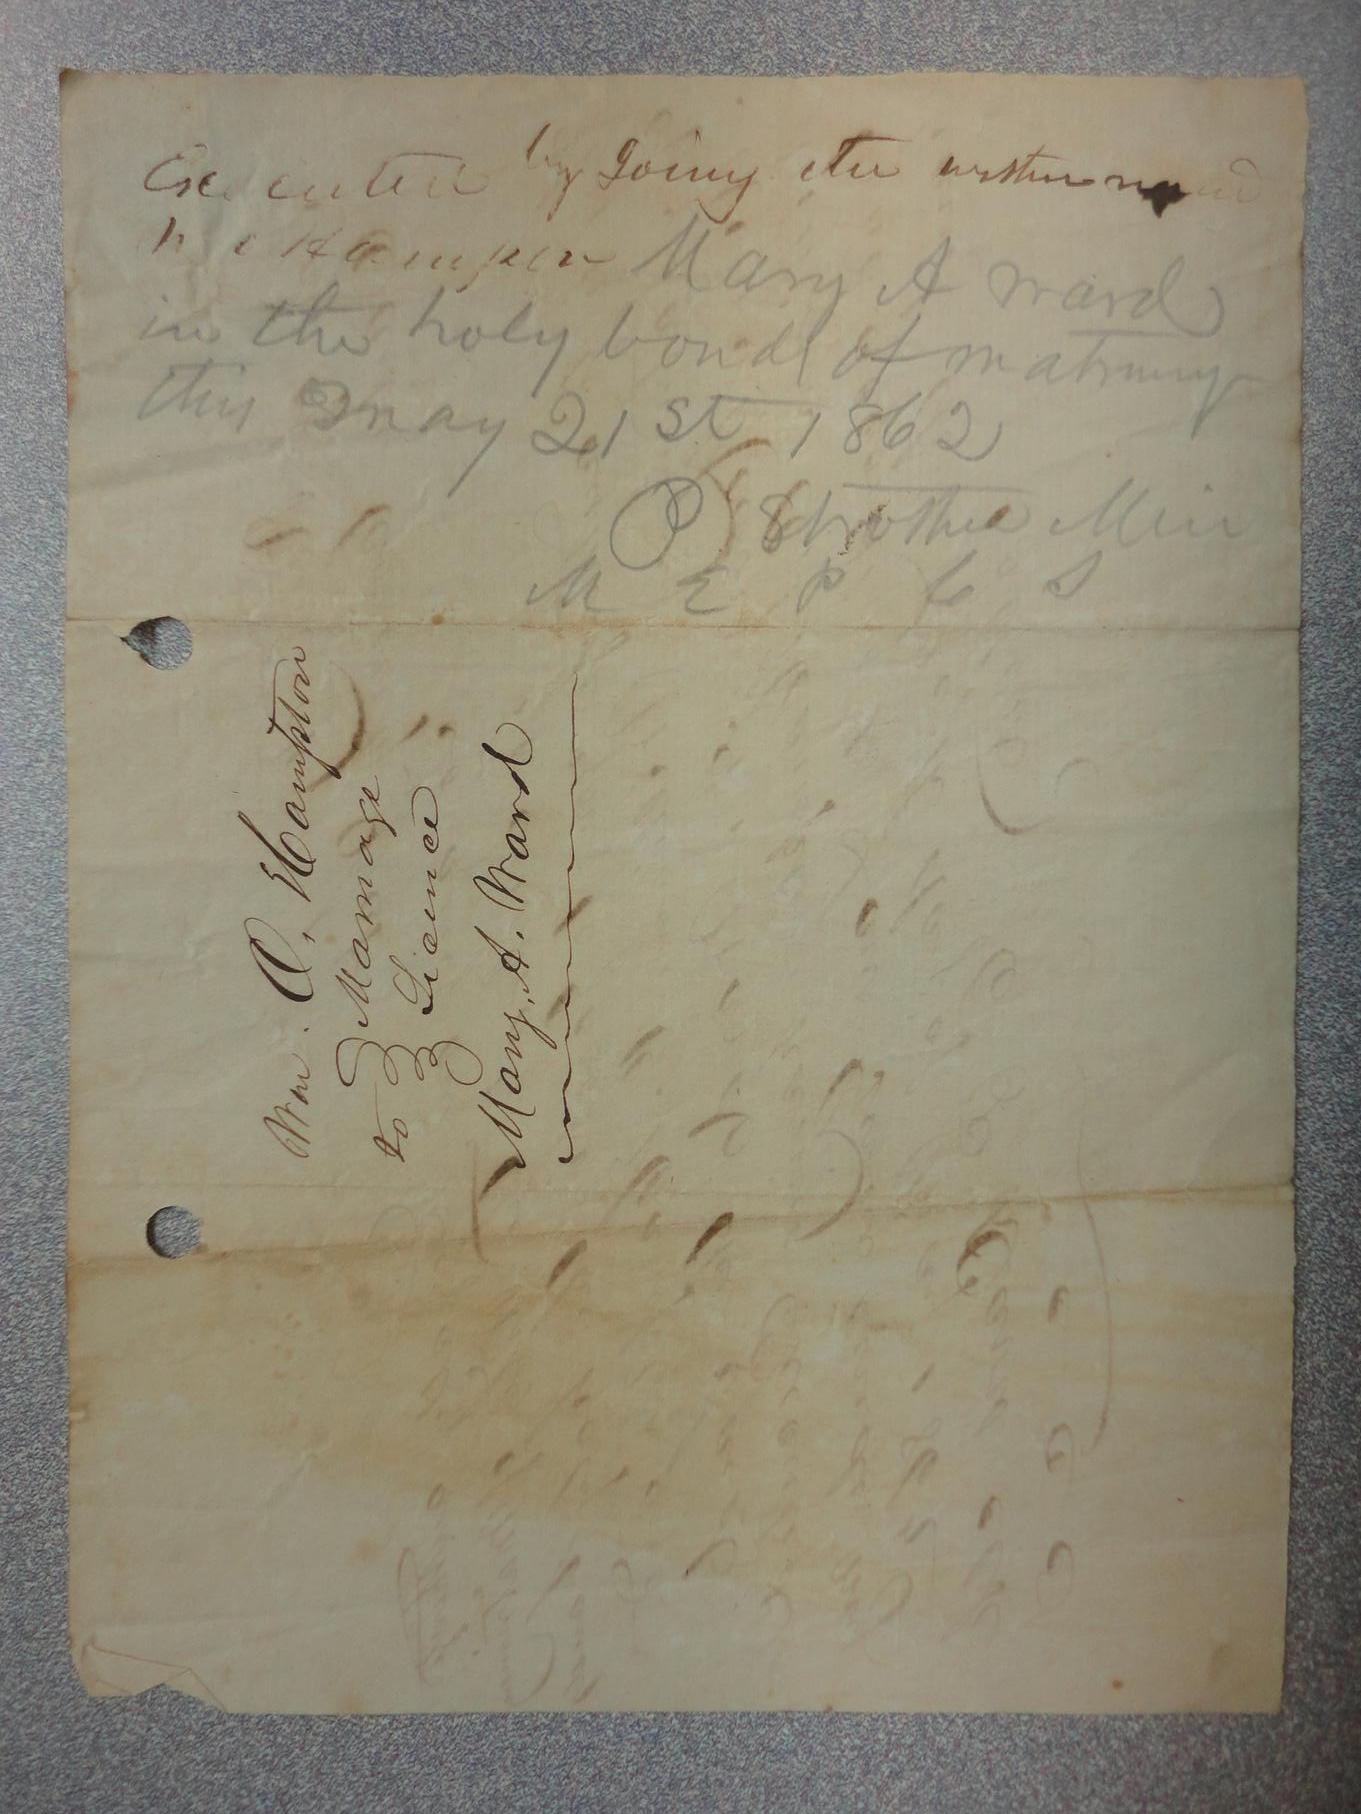 Executed by Joiny the within named
Hampton Mary A Ward
in the holy bonds of matrimy
this May 21st 1862
P Strother Min
M E P C S
Wm. O. Hampton
to Marriage
Licence
Mary, A. Ward